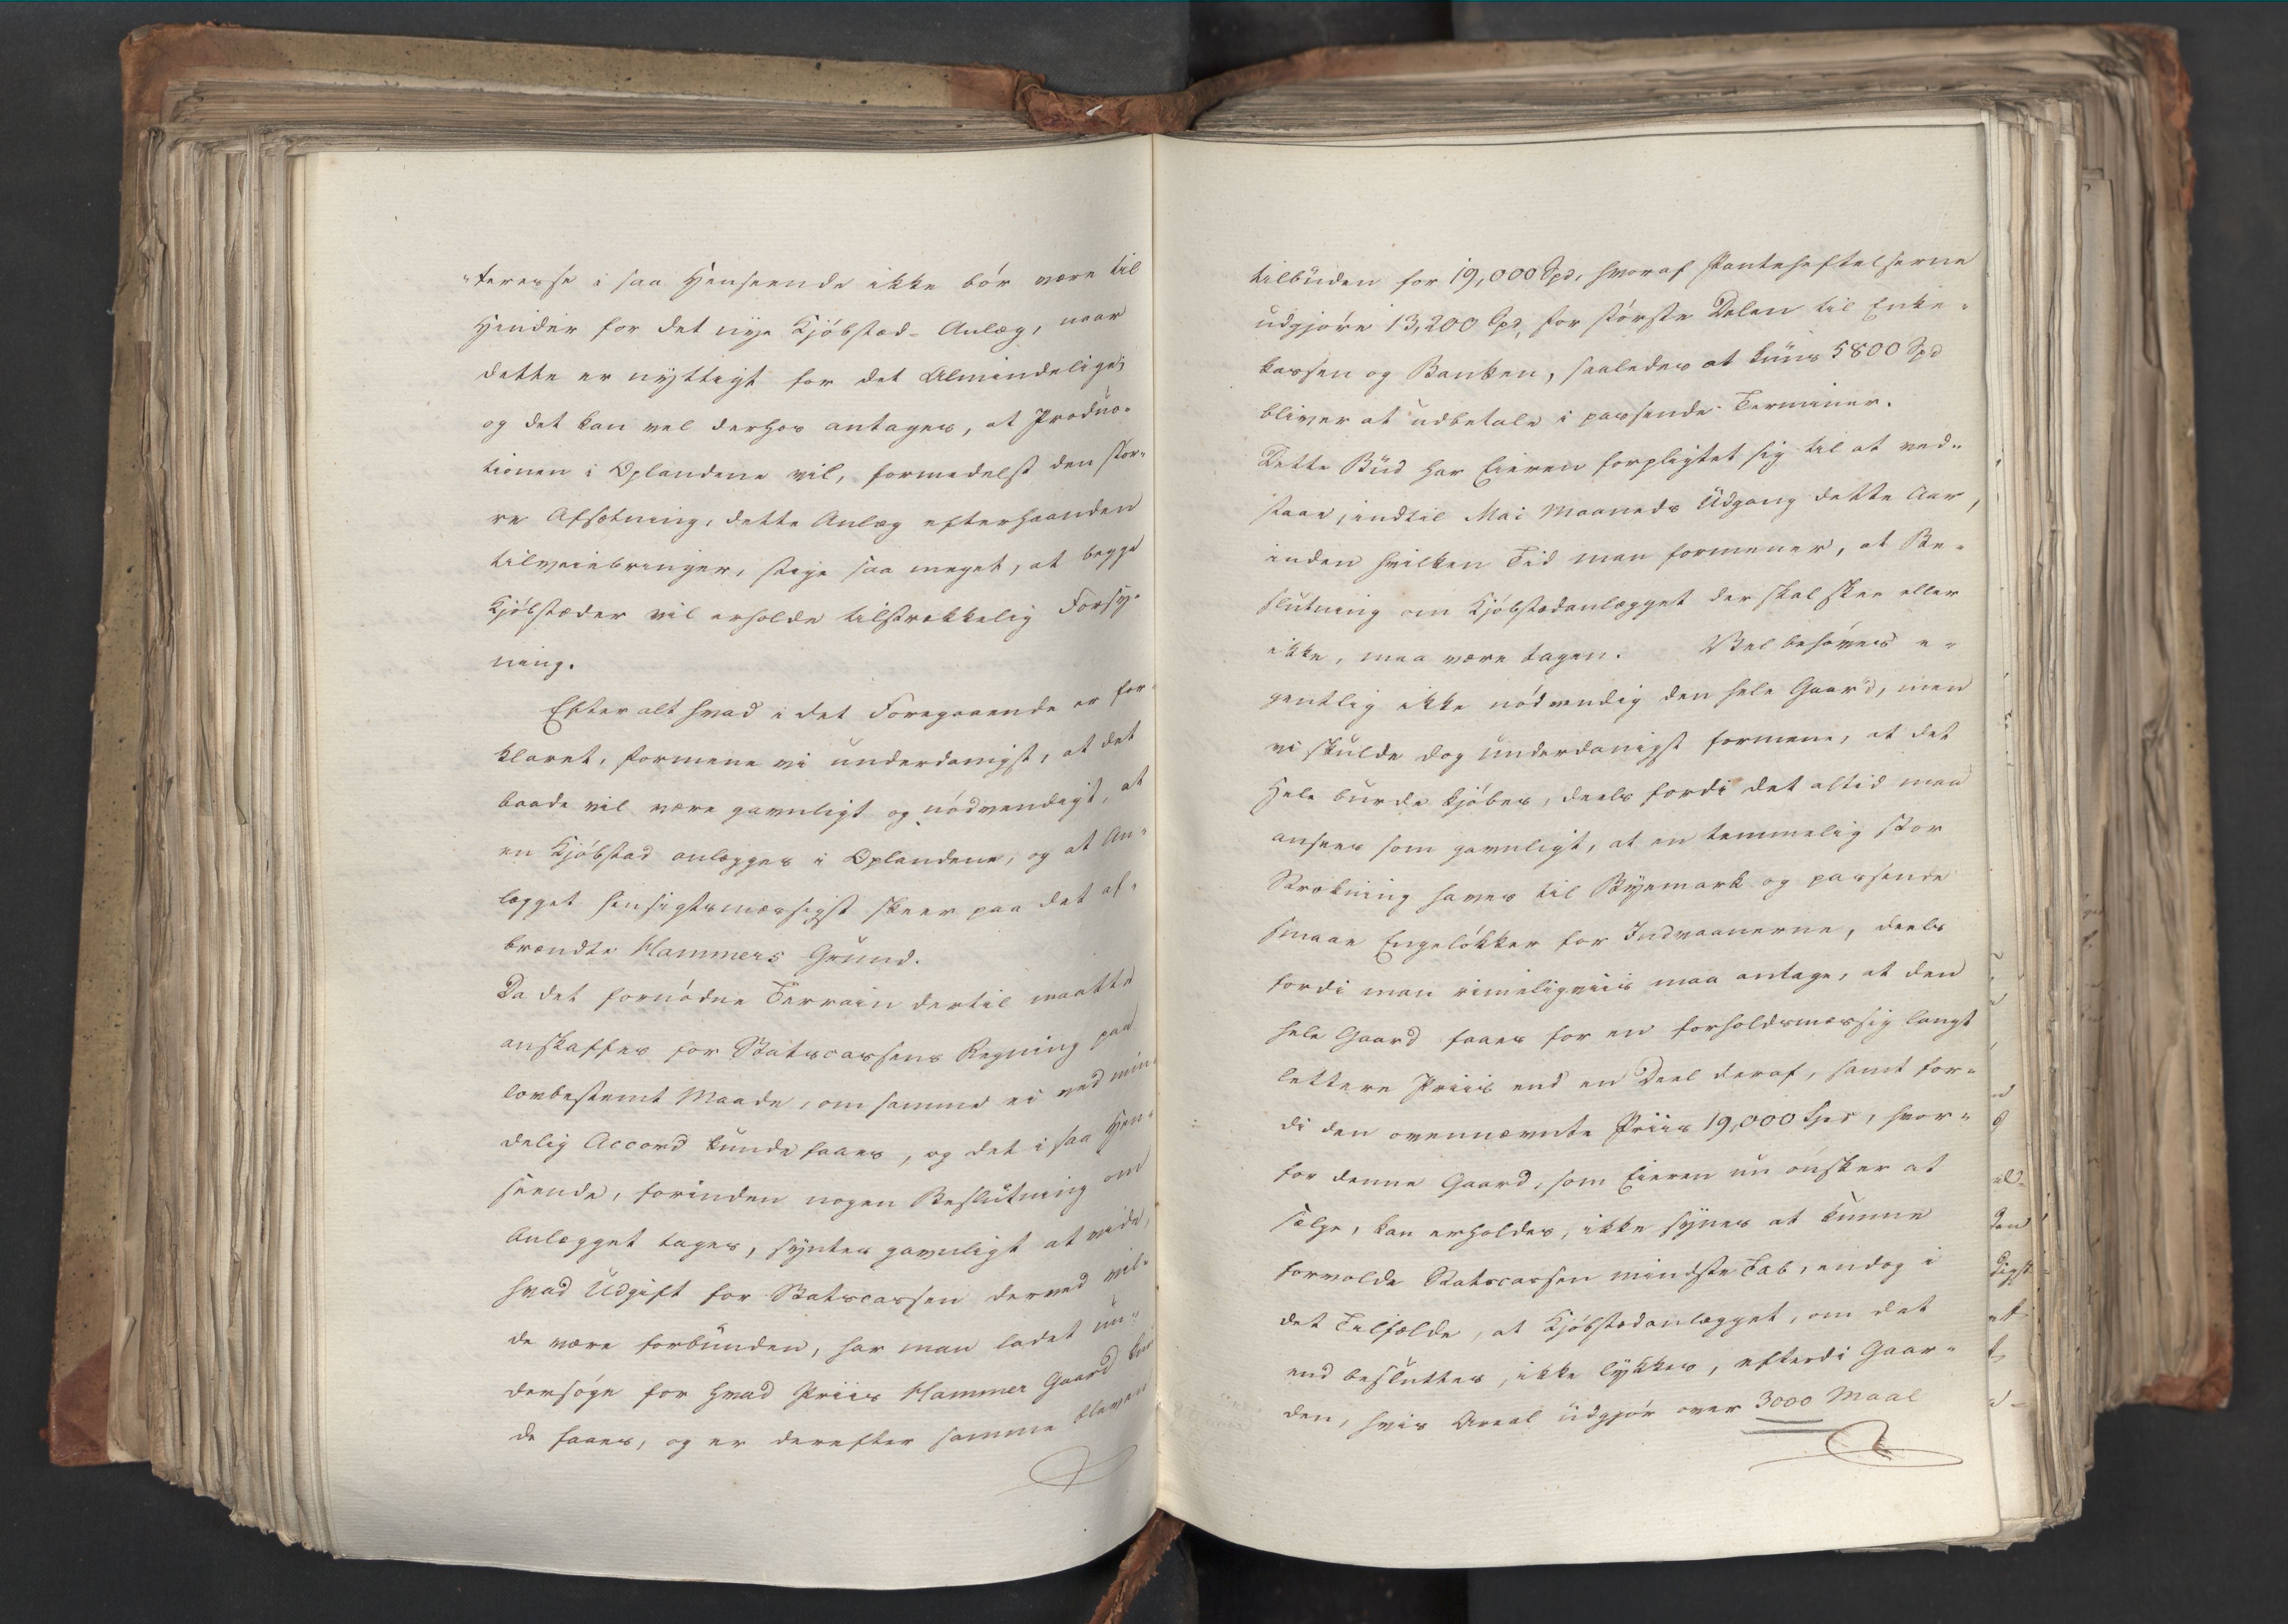 "teresse i saa Henseende ikke bör være til
Hinder for det nye Kjöbstad-Anlæg, naar
dette er nyttigt for det Almindelige,
og det kan vel derhos antages, at Produc-
tionen i Oplandene vil, formedelst den stör-
re Afsætning, dette Anlæg efterhaanden
tilveiebringer, stige saa meget, at begge
Kjöbstæder vil erholde tilstrækkelig Forsy-
ning.
Efter alt hvad i det Foregaaende er for-
klaret, formene vi underdanigst, at det
baade vil være gavnligt og nödvendigt, at
en Kjöbstad anlægges i Oplandene, og at An-
lægget hensigtsmæssigst skeer paa det af-
brændte Hammers Grund.
Da det fornödne Terrain dertil maatte
anskaffes for Statscassens Regning paa
lovbestemt Maade, om samme ei ved min-
delig Accord kunde faaes, og det i saa Hen-
seende, forinden nogen Beslutning om
Anlægget tages, syntes gavnligt at vide,
hvad Udgift for Statscassen derved vil-
de være forbunden, har man ladet un-
dersöge for hvad Priis Hammer Gaard kun-
de faaes, og er derefter samme bleven
tilbuden for 19,000 Spd, hvoraf Panteheftelserne
udgjöre 13,200 Spd, for störste Delen til Enke-
kassen og Banken, saaledes at kuns 5800 Spd
bliver at udbetale i passende Terminer.
Dette Bud har Eieren forpligtet sig til at ved-
staae, indtil Mai Maaneds Udgang dette Aar,
inden hvilken Tid man formener, at Be-
slutning om Kjöbstadanlægget der skal skee eller
ikke, maa være tagen. Vel behöves e-
gentlig ikke nödvendig den hele Gaard, men
vi skulde dog underdanigst formene, at det
Hele burde kjöbes, deels fordi det altid maa
ansees som gavnligt, at en temmelig stor
Strækning haves til Byemark og passende
smaae Engelökker for Indvaanerne, deels
fordi man rimeligviis maa antage, at den
hele Gaard faaes for en forholdsmæssig langt
lettere Priis end en Deel deraf, samt for-
di den ovennævnte Priis 19,000 Spd, hvor-
for denne Gaard, som Eieren nu önsker at
sælge, kan erholdes, ikke synes at kunne
forvolde Statscassen mindste Tab, endog i
det Tilfælde, at Kjöbstadanlægget, om det
end besluttes, ikke lykkes, efterdi Gaar-
den, hvis Areal udgjör over 3000 Maal